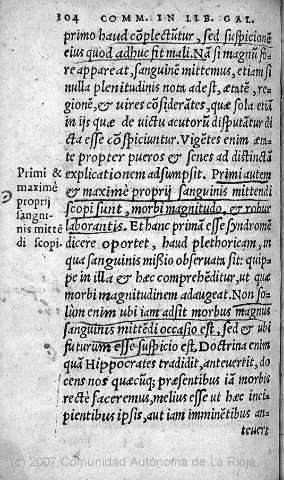 104 COMM. IN LIB. GAL.
primo haud cõplectutur, sed suspicionẽ
eius quod adhuc fit mali. Nã si magnũ fo
re appareat, sanguinẽ mittemus, etiam si
nulla plenitudinis nota adest, ætatẽ, re-
gionẽ, & uires cõsiderãtes, quæ sola etiã
in ijs quæ de uictu acutorũ disputãtur di
cta esse cõspiciuntur. Vigẽtes enim æta-
te propter pueros & senes ad distinctã
explicationem adsumpsit. Primi autem
& maximè proprij sanguinis mittendi
scopi sunt, morbi magnitudo, & robur
laborantis. Et hanc primã esse syndromẽ
dicere oportet, haud plethoricam, in
qua sanguinis mißio obseruata sit: quip-
pe in illa & hæc comprehẽditur, ut quæ
morbi magnitudinem adaugeat. Non so-
lùm enim ubi iam adsit morbus magnus
sanguinis mittẽdi occasio est, sed & ubi
futurum esse suspicio est. Doctrina enim
quã Hippocrates tradidit, anteuertit, do
cens nos quæcũq; præsentibus iã morbis
rectè faceremus, melius esse ut hæc inci-
pientibus ipsis, aut iam imminẽtibus an-
teuere
Primi &
maximè
proprij
sangui-
nis mittẽ
di scopi.
(c) 2007 Comunidad Autónoma de La Rioja